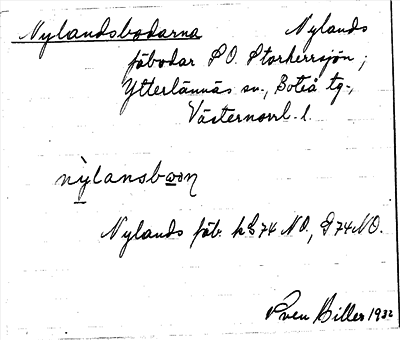 Nylandsbodarna Nylands
fäbodar S O. Storherrsjön;
Ytterlännäs sn., Boteå tg.,
Västernorrl. l.
nylansbωοn
Nylands fäb. k 874 NO., 874 NO.
Sven Billes 1932